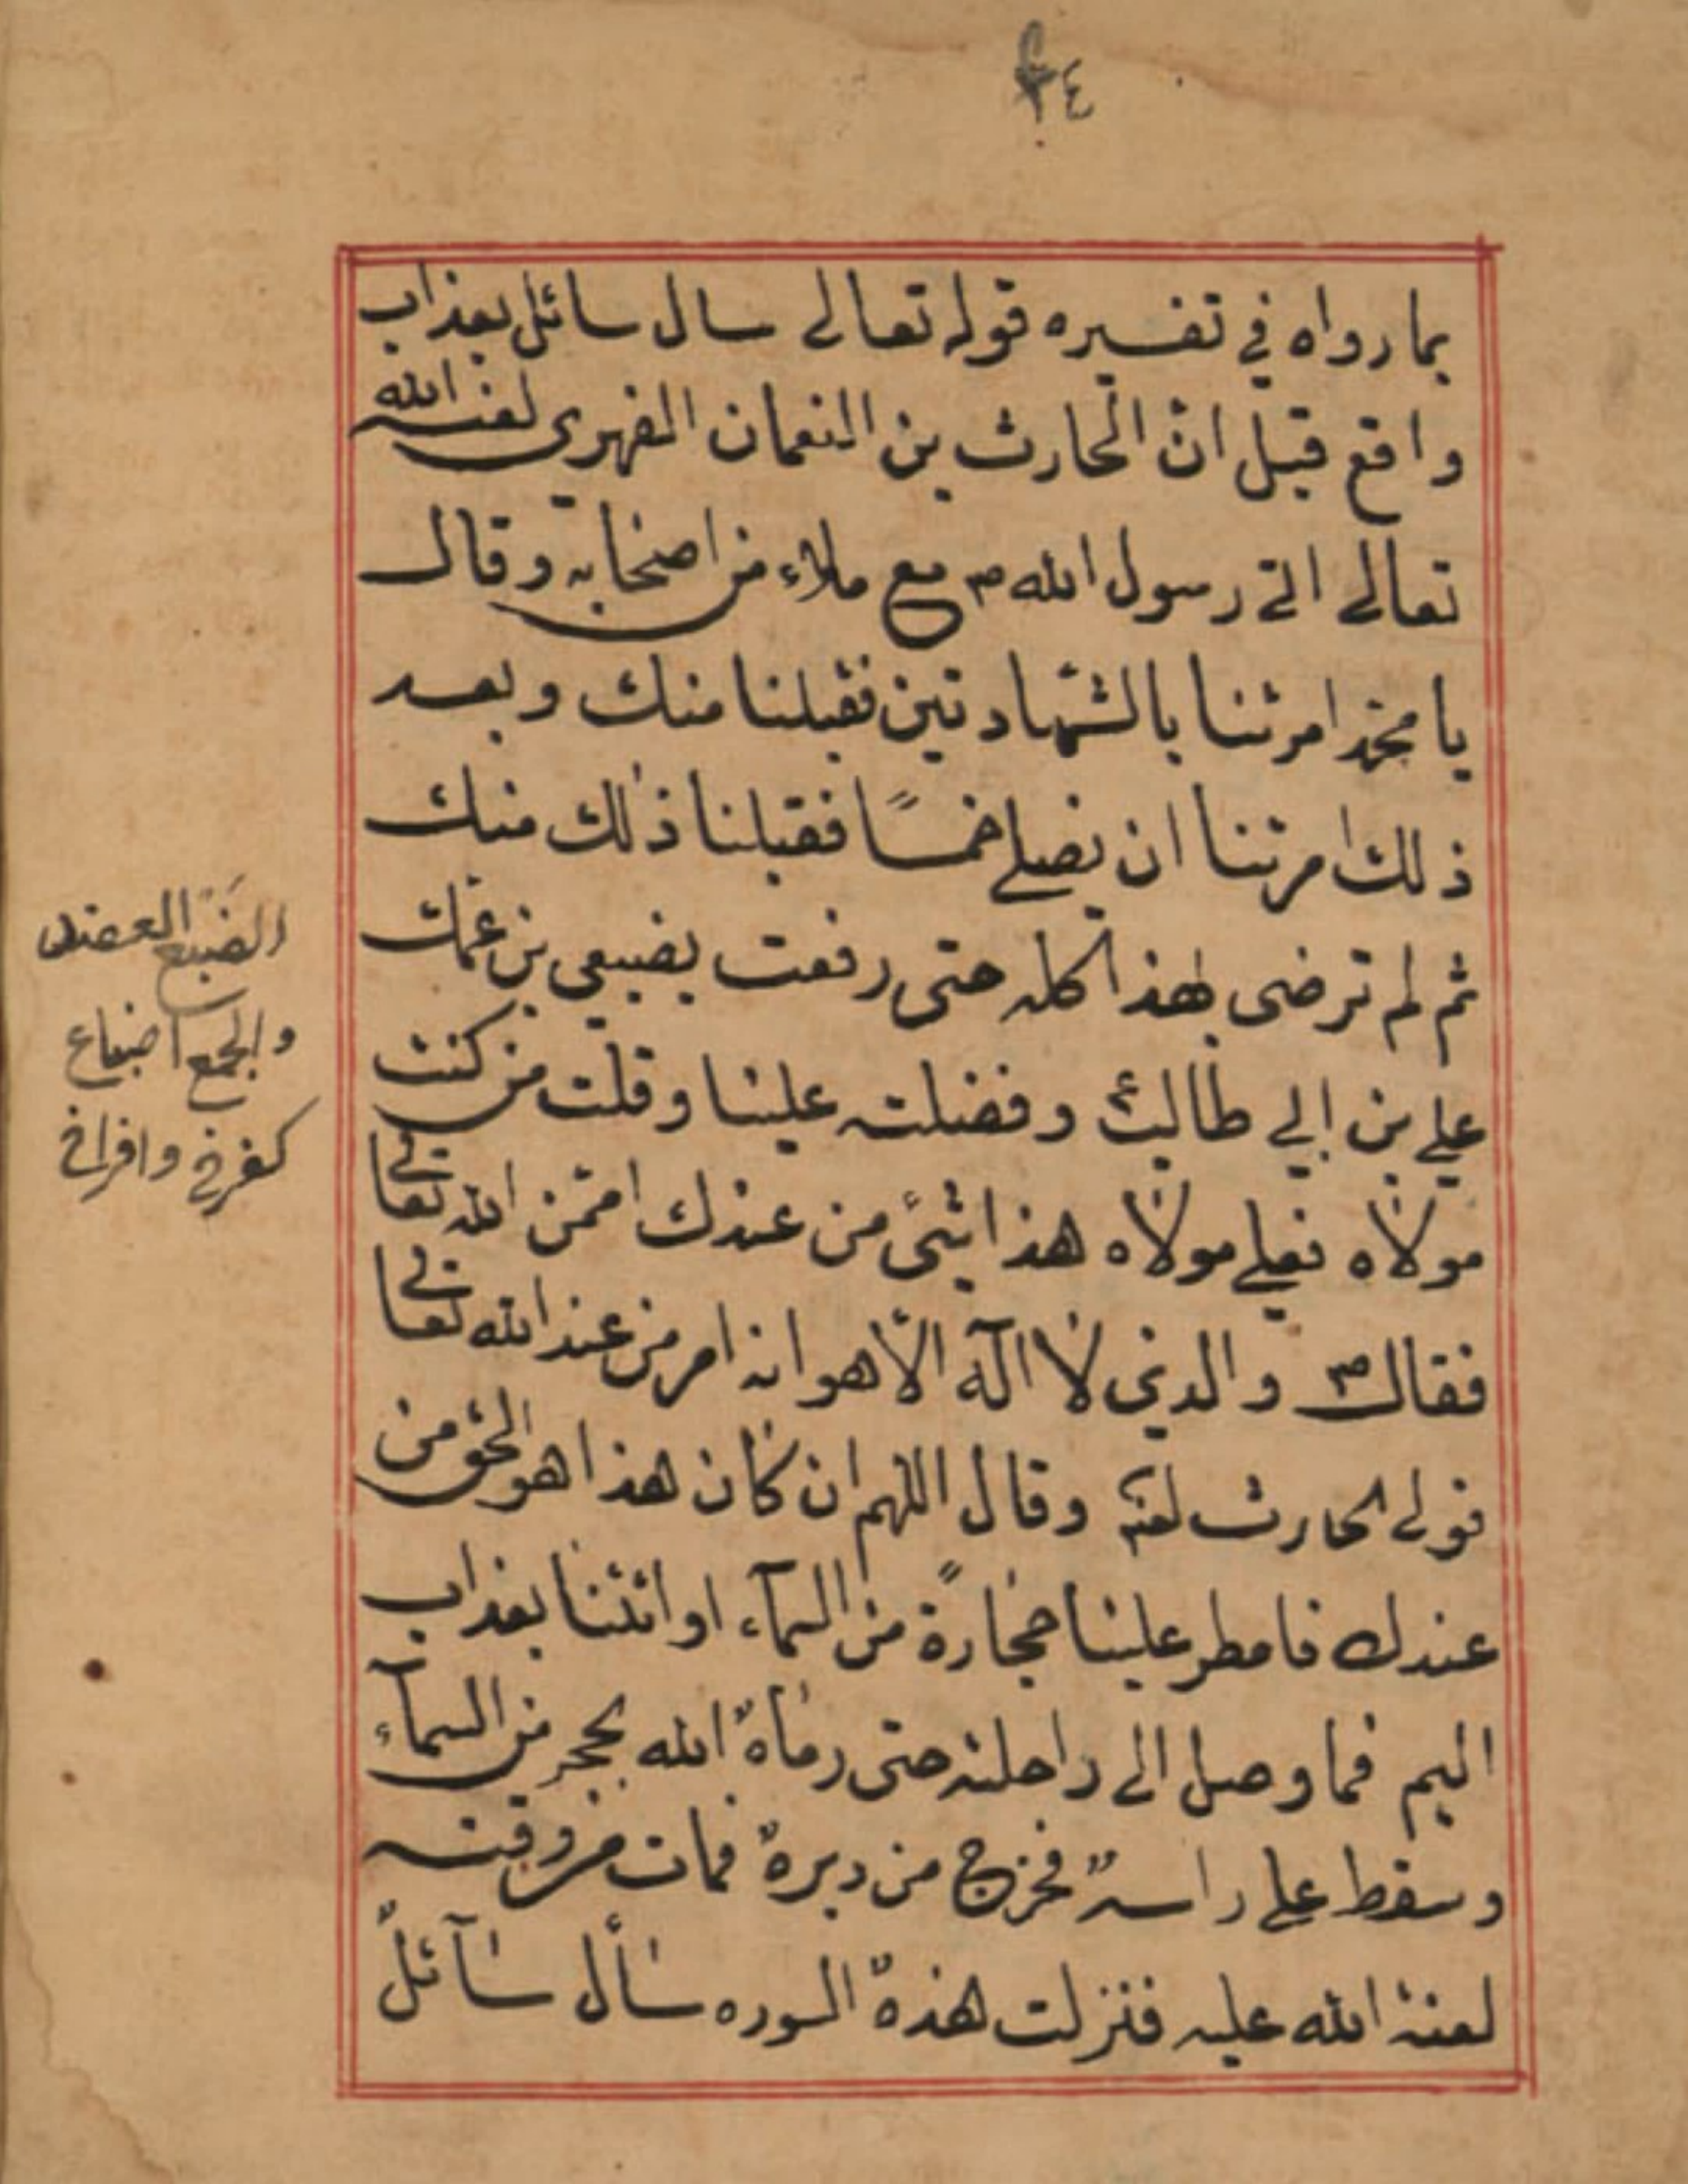 ٣٤
بما رواه في تفسيره قوله تعالى سال سائل بعذاب
واقع قيل انّ الحارث بن النعمان الفهري لعنه الله
تعالى اتى رسول الله ص مع ملاء من اصحابه وقال
يا محمد امرتنا بالشهادتين فقبلنا منك وبعد
ذلك امرتنا ان نصلي خمسًا فقبلنا ذلك منك
ثم لم ترضى بهذا كله حتى رفعت بضبعي بن عمك
علي بن ابي طالب ع وفضلته علينا وقلت من كنت
مولاه فعلي مولاه هذا شئ من عندك ام من الله تعالى
فقال ص والذي لا اله الّا هو انه امر من عند الله تعالى
فولى الحارث لعنه وقال اللهم ان كان هذا هو الحق من
عندك فامطر علينا حجارةً من السمآء او ائتنا بعذاب
اليم فما وصل الى راحلته حتى رماه الله بحجر من السمآء
وسقط على راسه فخرج من دبره فمات من وقته
لعنة الله عليه فنزلت هذه السوره سأل سآئل
الضبع العضد
والجمع اضباع
كفرخ وافراخ